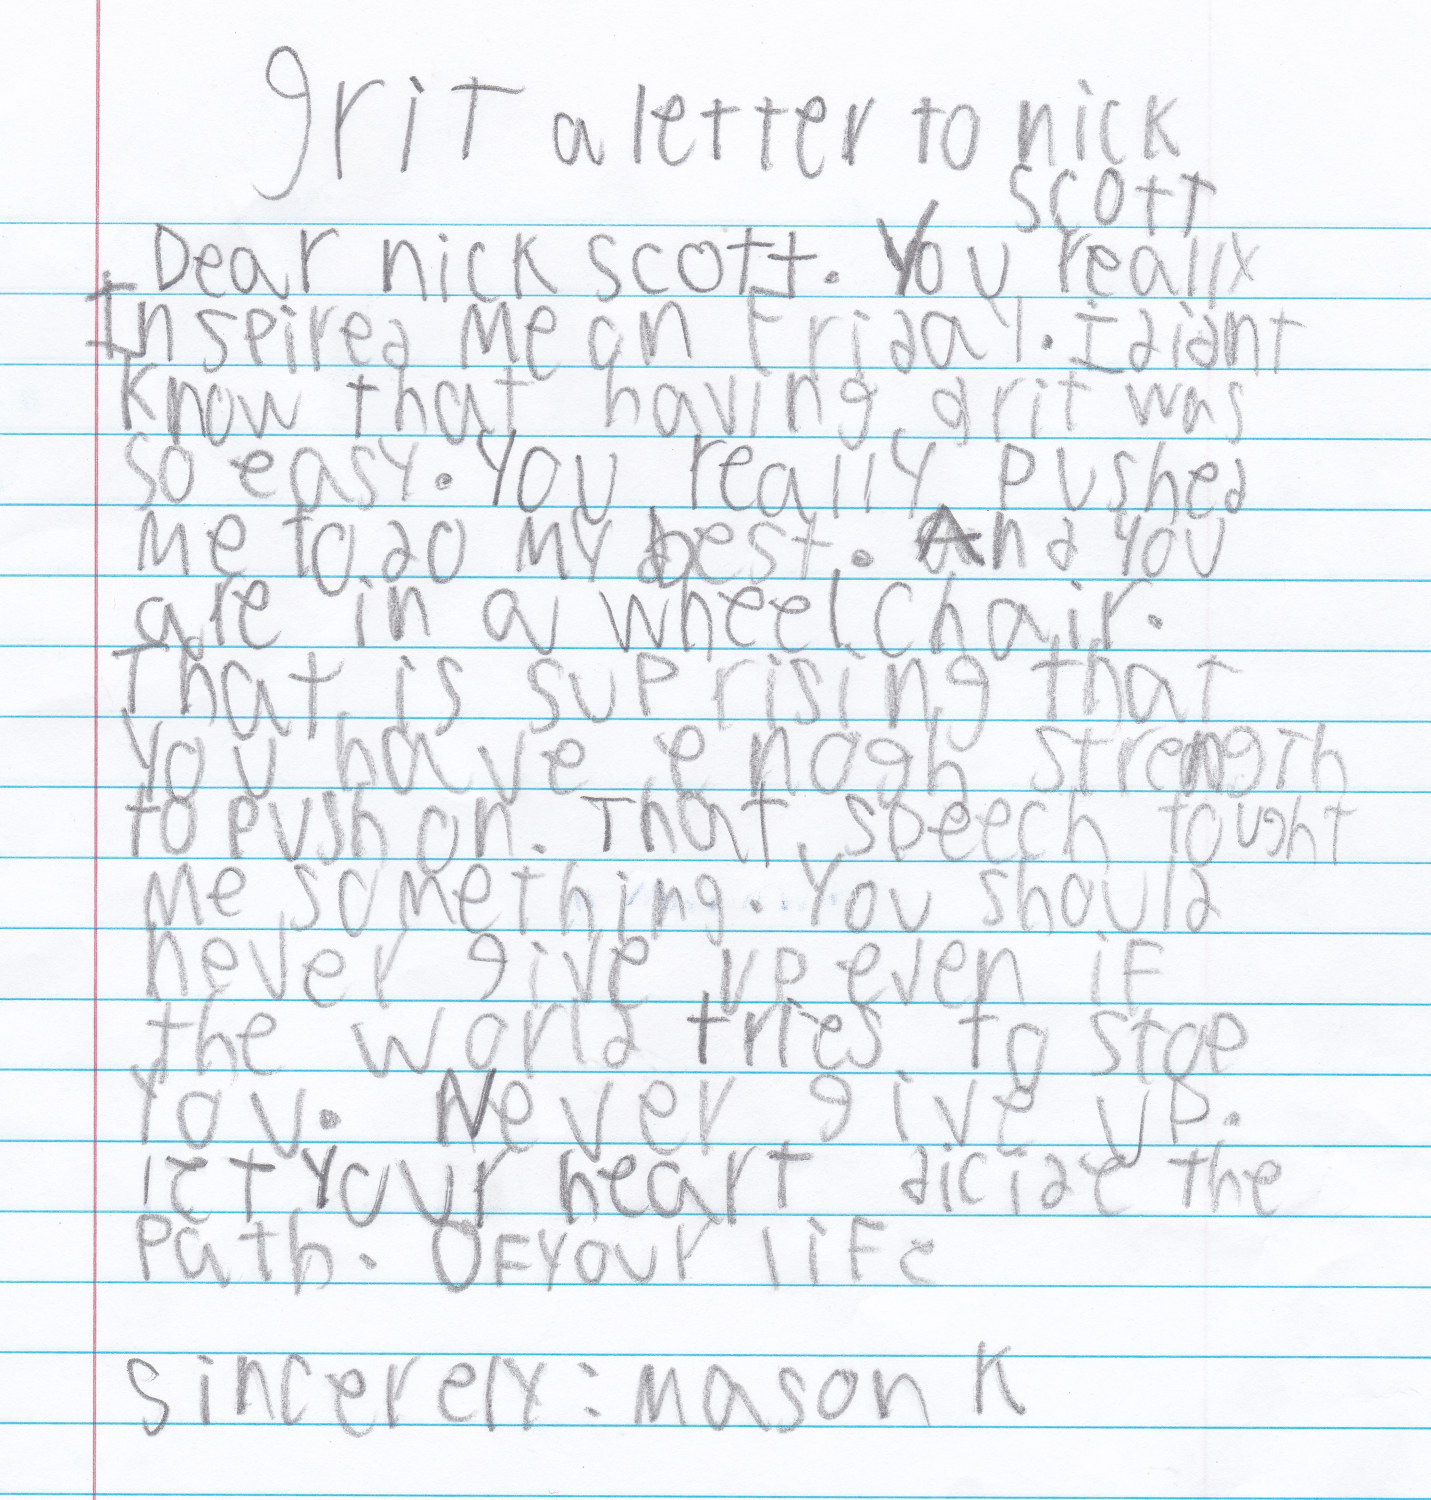 grit a letter to nick
scott
Dear nick scott. You really
Inspired me on Friday. I didnt
know that having grit was
so easy. You really pushed
me to do my best. And you
are in a wheelchair.
That is suprising that
you have enogh strength
to push on. That speech tought
me something. You should
never give up even if
the world tries to stop
you. Never give up.
let your heart dicide the
path. Of your life
sincerely: mason K